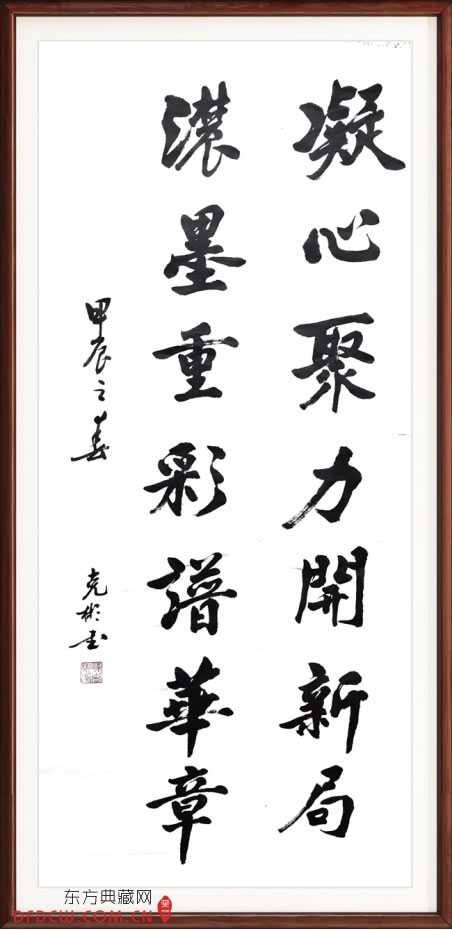 凝心聚力開新局
濃墨重彩譜華章
甲辰之春
克彬书
东方典藏网
DFDCW.COM.CN